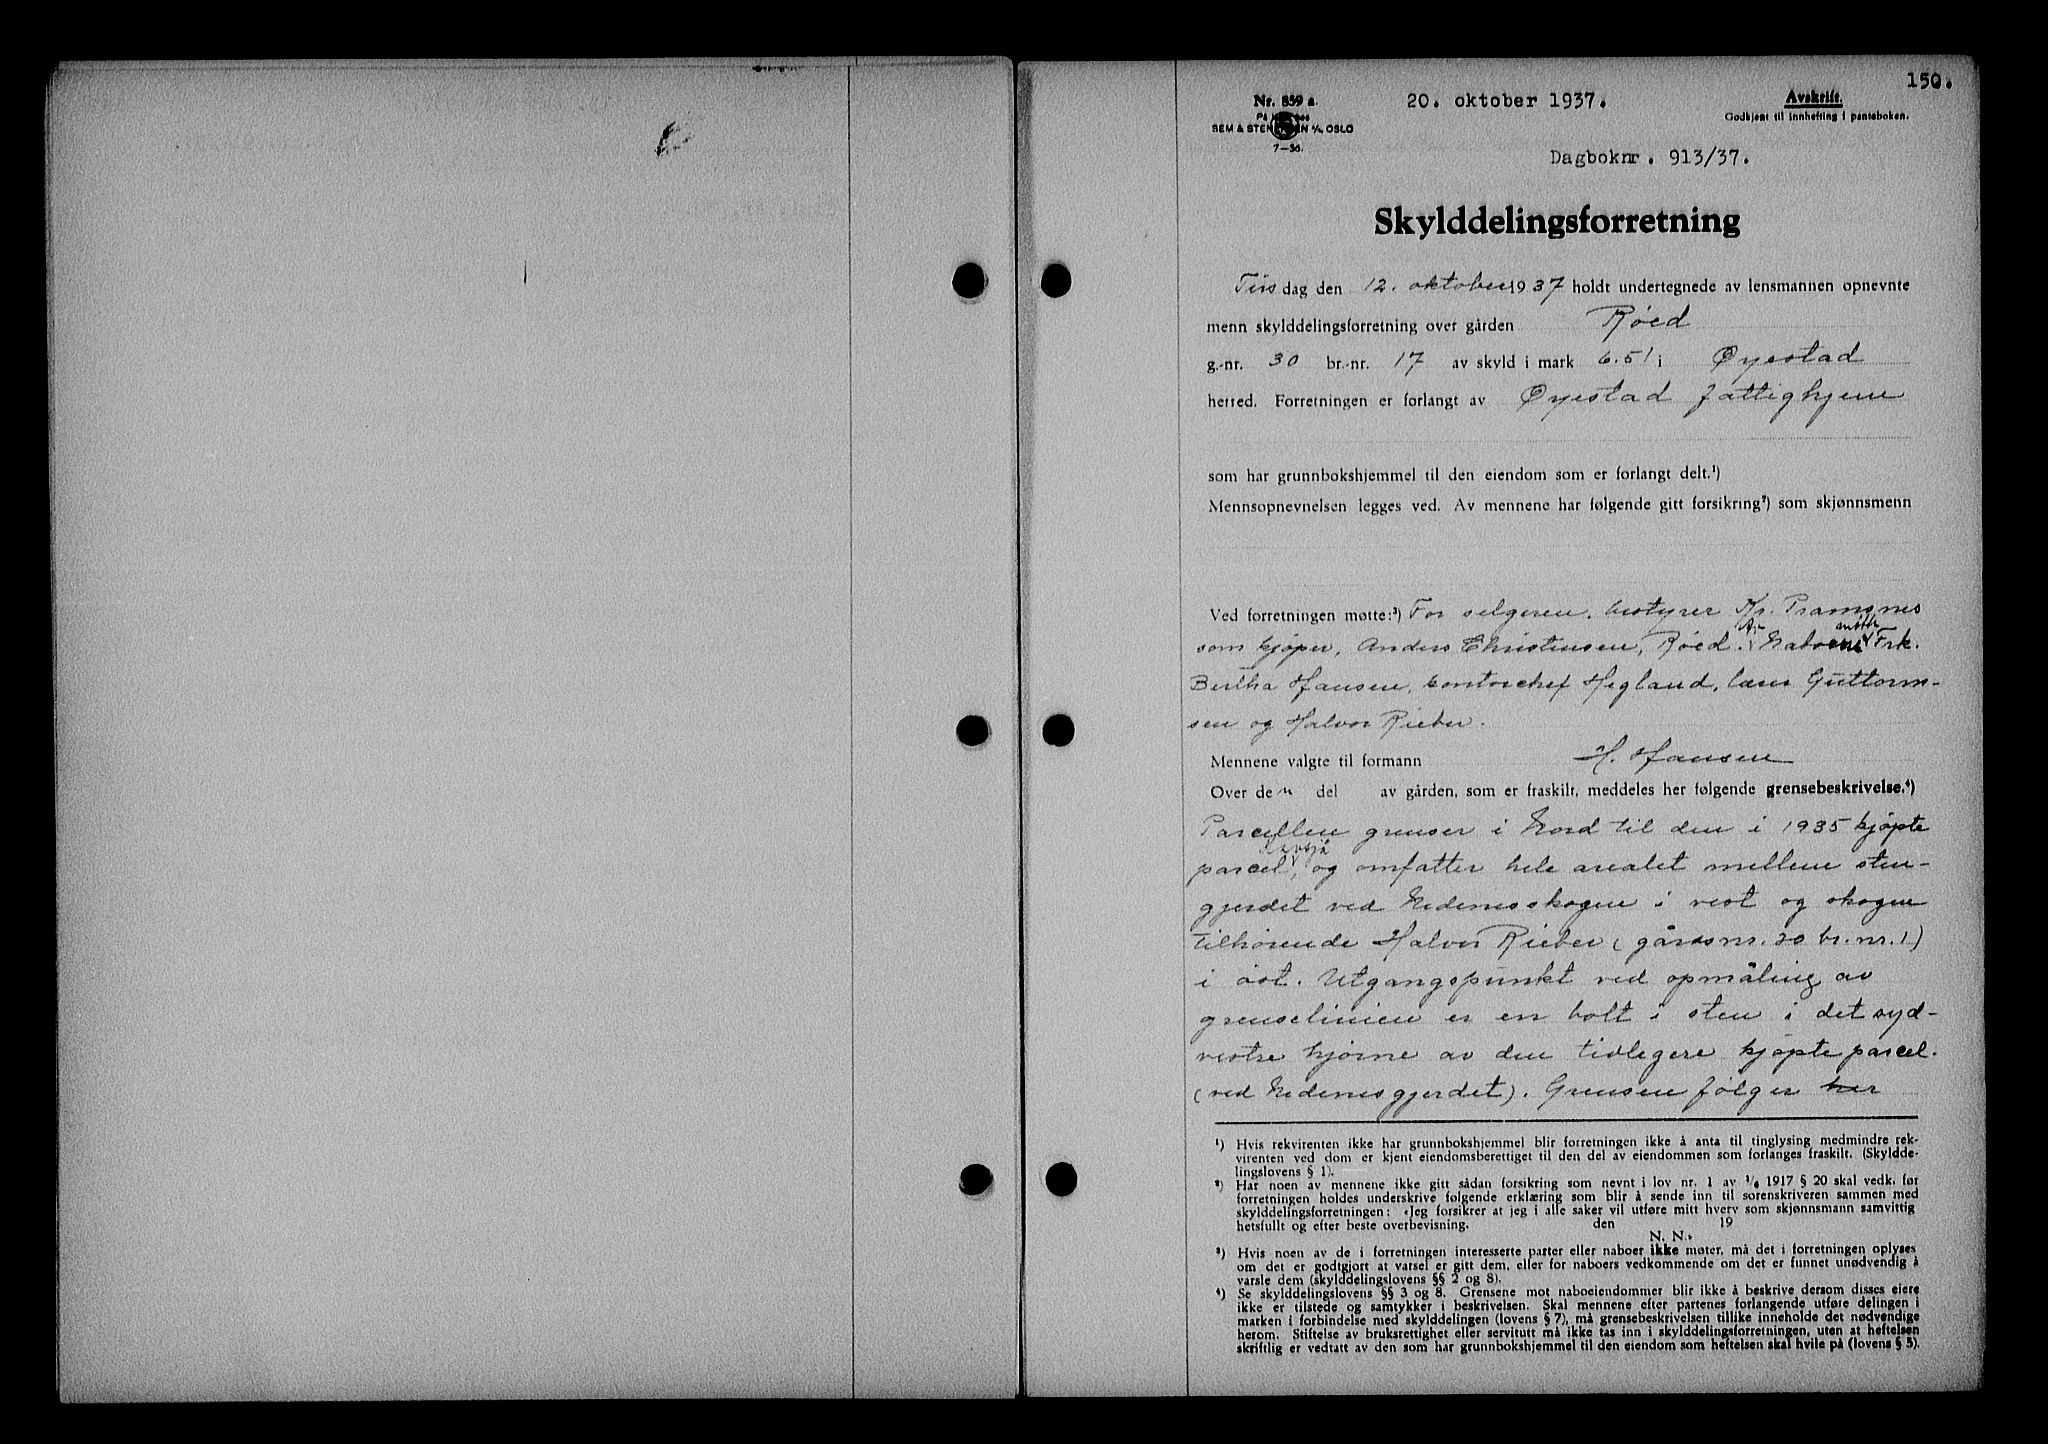 150.
Nr. 859 a.
20. oktober 1937.
Avskrift.
Godkjent til innhefting i panteboken.
SEM & STENERSEN A/S OSLO
7-36.
Dagboknr. 913/37.
Skylddelingsforretning
Tirsdag den 12. oktober 1937 holdt undertegnede av lensmannen opnevnte
menn skylddelingsforretning over gården Røed
g.-nr. 30 br.-nr. 17 av skyld i mark 6.51 i Øyestad
herred. Forretningen er forlangt av Øyestad fattighjem
som har grunnbokshjemmel til den eiendom som er forlangt delt.¹)
Mennsopnevnelsen legges ved. Av mennene har følgende gitt forsikring²) som skjønnsmenn
Ved forretningen møtte:³) For selgeren, bestyrer Kr. Pramsnes
som kjøper, Anders Christensen, Røed. Av Naboene møtte Frk.
Bertha Hansen, kontorchef Hegland, lærer Guttorm-
sen og Halvor Rieber.
Mennene valgte til formann H. Hansen
Over den del av gården, som er fraskilt, meddeles her følgende grensebeskrivelse.⁴)
Parcellen grenser i Nord til den i 1935 kjøpte
parcel, og omfatter hele arealet mellem sten-
gjerdet ved Nedenesskogen i vest og skogen
tilhørende Halvor Rieber (gårdsnr. 30 br. nr. 1)
i øst. Utgangspunkt ved opmåling av
grenselinien er en bolt i sten i det syd-
vestre hjørne av den tidligere kjøpte parcel.
(ved Nedenesgjerdet). Grensen følger her
¹) Hvis rekvirenten ikke har grunnbokshjemmel blir forretningen ikke å anta til tinglysing medmindre rek-
virenten ved dom er kjent eiendomsberettiget til den del av eiendommen som forlanges fraskilt. (Skyldde-
lingslovens § 1).
²) Har noen av mennene ikke gitt sådan forsikring som nevnt i lov nr. 1 av ¹/₆ 1917 § 20 skal vedk. før
forretningen holdes underskrive følgende erklæring som blir å sende inn til sorenskriveren sammen med
skylddelingsforretningen: «Jeg forsikrer at jeg i alle saker vil utføre mitt hverv som skjønnsmann samvittig
hetsfullt og efter beste overbevisning. den 19
N. N.»
³) Hvis noen av de i forretningen interesserte parter eller naboer ikke møter, må det i forretningen oplyses
om det er godtgjort at varsel er gitt dem, eller for naboers vedkommende om det er funnet unødvendig å
varsle dem (skylddelingslovens §§ 2 og 8).
⁴) Se skylddelingslovens §§ 3 og 8. Grensene mot naboeiendommer blir ikke å beskrive dersom disses eiere
ikke er tilstede og samtykker i beskrivelsen. Skal mennene efter partenes forlangende utføre delingen i
marken i forbindelse med skylddelingen (lovens § 7), må grensebeskrivelsen tillike inneholde det nødvendige
herom. Stiftelse av bruksrettighet eller servitutt må ikke tas inn i skylddelingsforretningen, uten at heftelsen
skriftlig er vedtatt av den som har grunnbokshjemmel til den eiendom som heftelsen skal hvile på (lovens § 5).